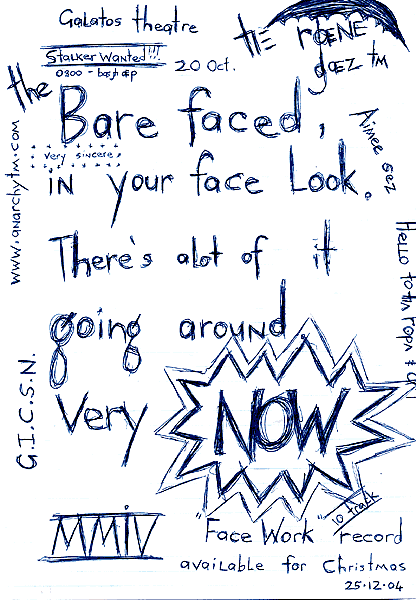 Galatos theatre
Stalker Wanted!!!
0800 -
20 Oct.
the
gœz tm
the
Bare faced,
Very sincere,
in your face Look.
Aimee sez
www.anarchytm.com
There's alot of it
going around.
Very NOW
G.I.C.S.N.
MMIV
"Face Work" record
10 track
available for Christmas
25.12.04